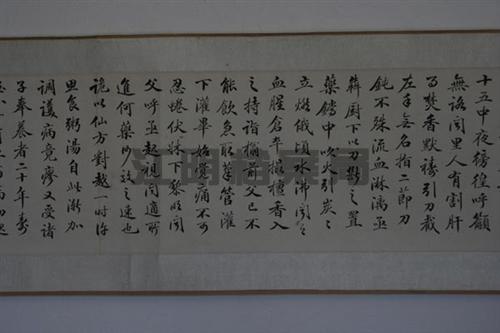 十五中夜徬徨呼籲
無詻聞里人有割肝
為焚香默禱引刀截
左手無名指二節刀
鈍不殊流血淋漓亟
犇厨下以刀斷之置
藥鐺中吹火引炭之
立燃俄頃水沸聞
血腥倉卒攟檀香入
之持詣榻前父已不
能飲急取筆管灌
下灌畢始覺痛不可
忍蜷伏牀下黎明聞
父呼亟起視問適所
進何藥ツ人效之速也
詭以仙方對越一時許
思食粥湯自此漸加
調護病竟瘳又受諸
子奉養者二十年壽